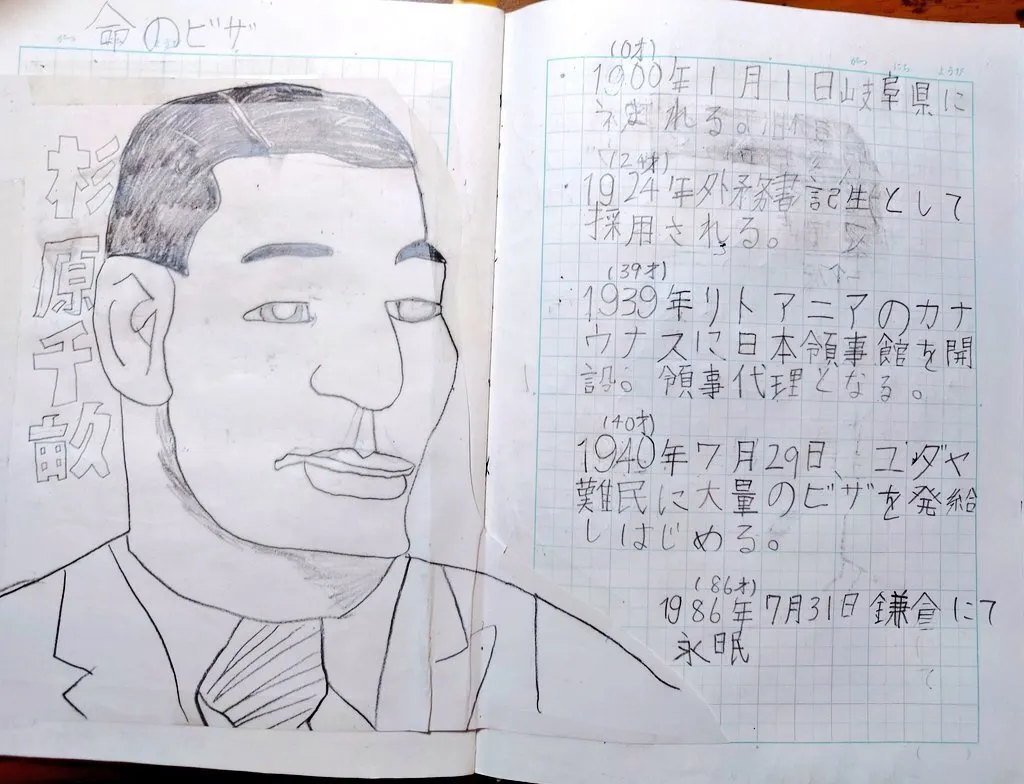 命のビザ
杉原千畝
がつ にち ようび
(0才)
1900年1月1日岐阜県に
まれる。
(24才)
1924年外務書記生として
採用される。
(39才)
1939年リトアニアのカナ
ウナスに日本領事館を開
設。領事代理となる。
(40才)
1940年7月29日、ユダヤ
難民に大量のビザを発給
しはじめる。
(86才)
1986年7月31日鎌倉にて
永眠